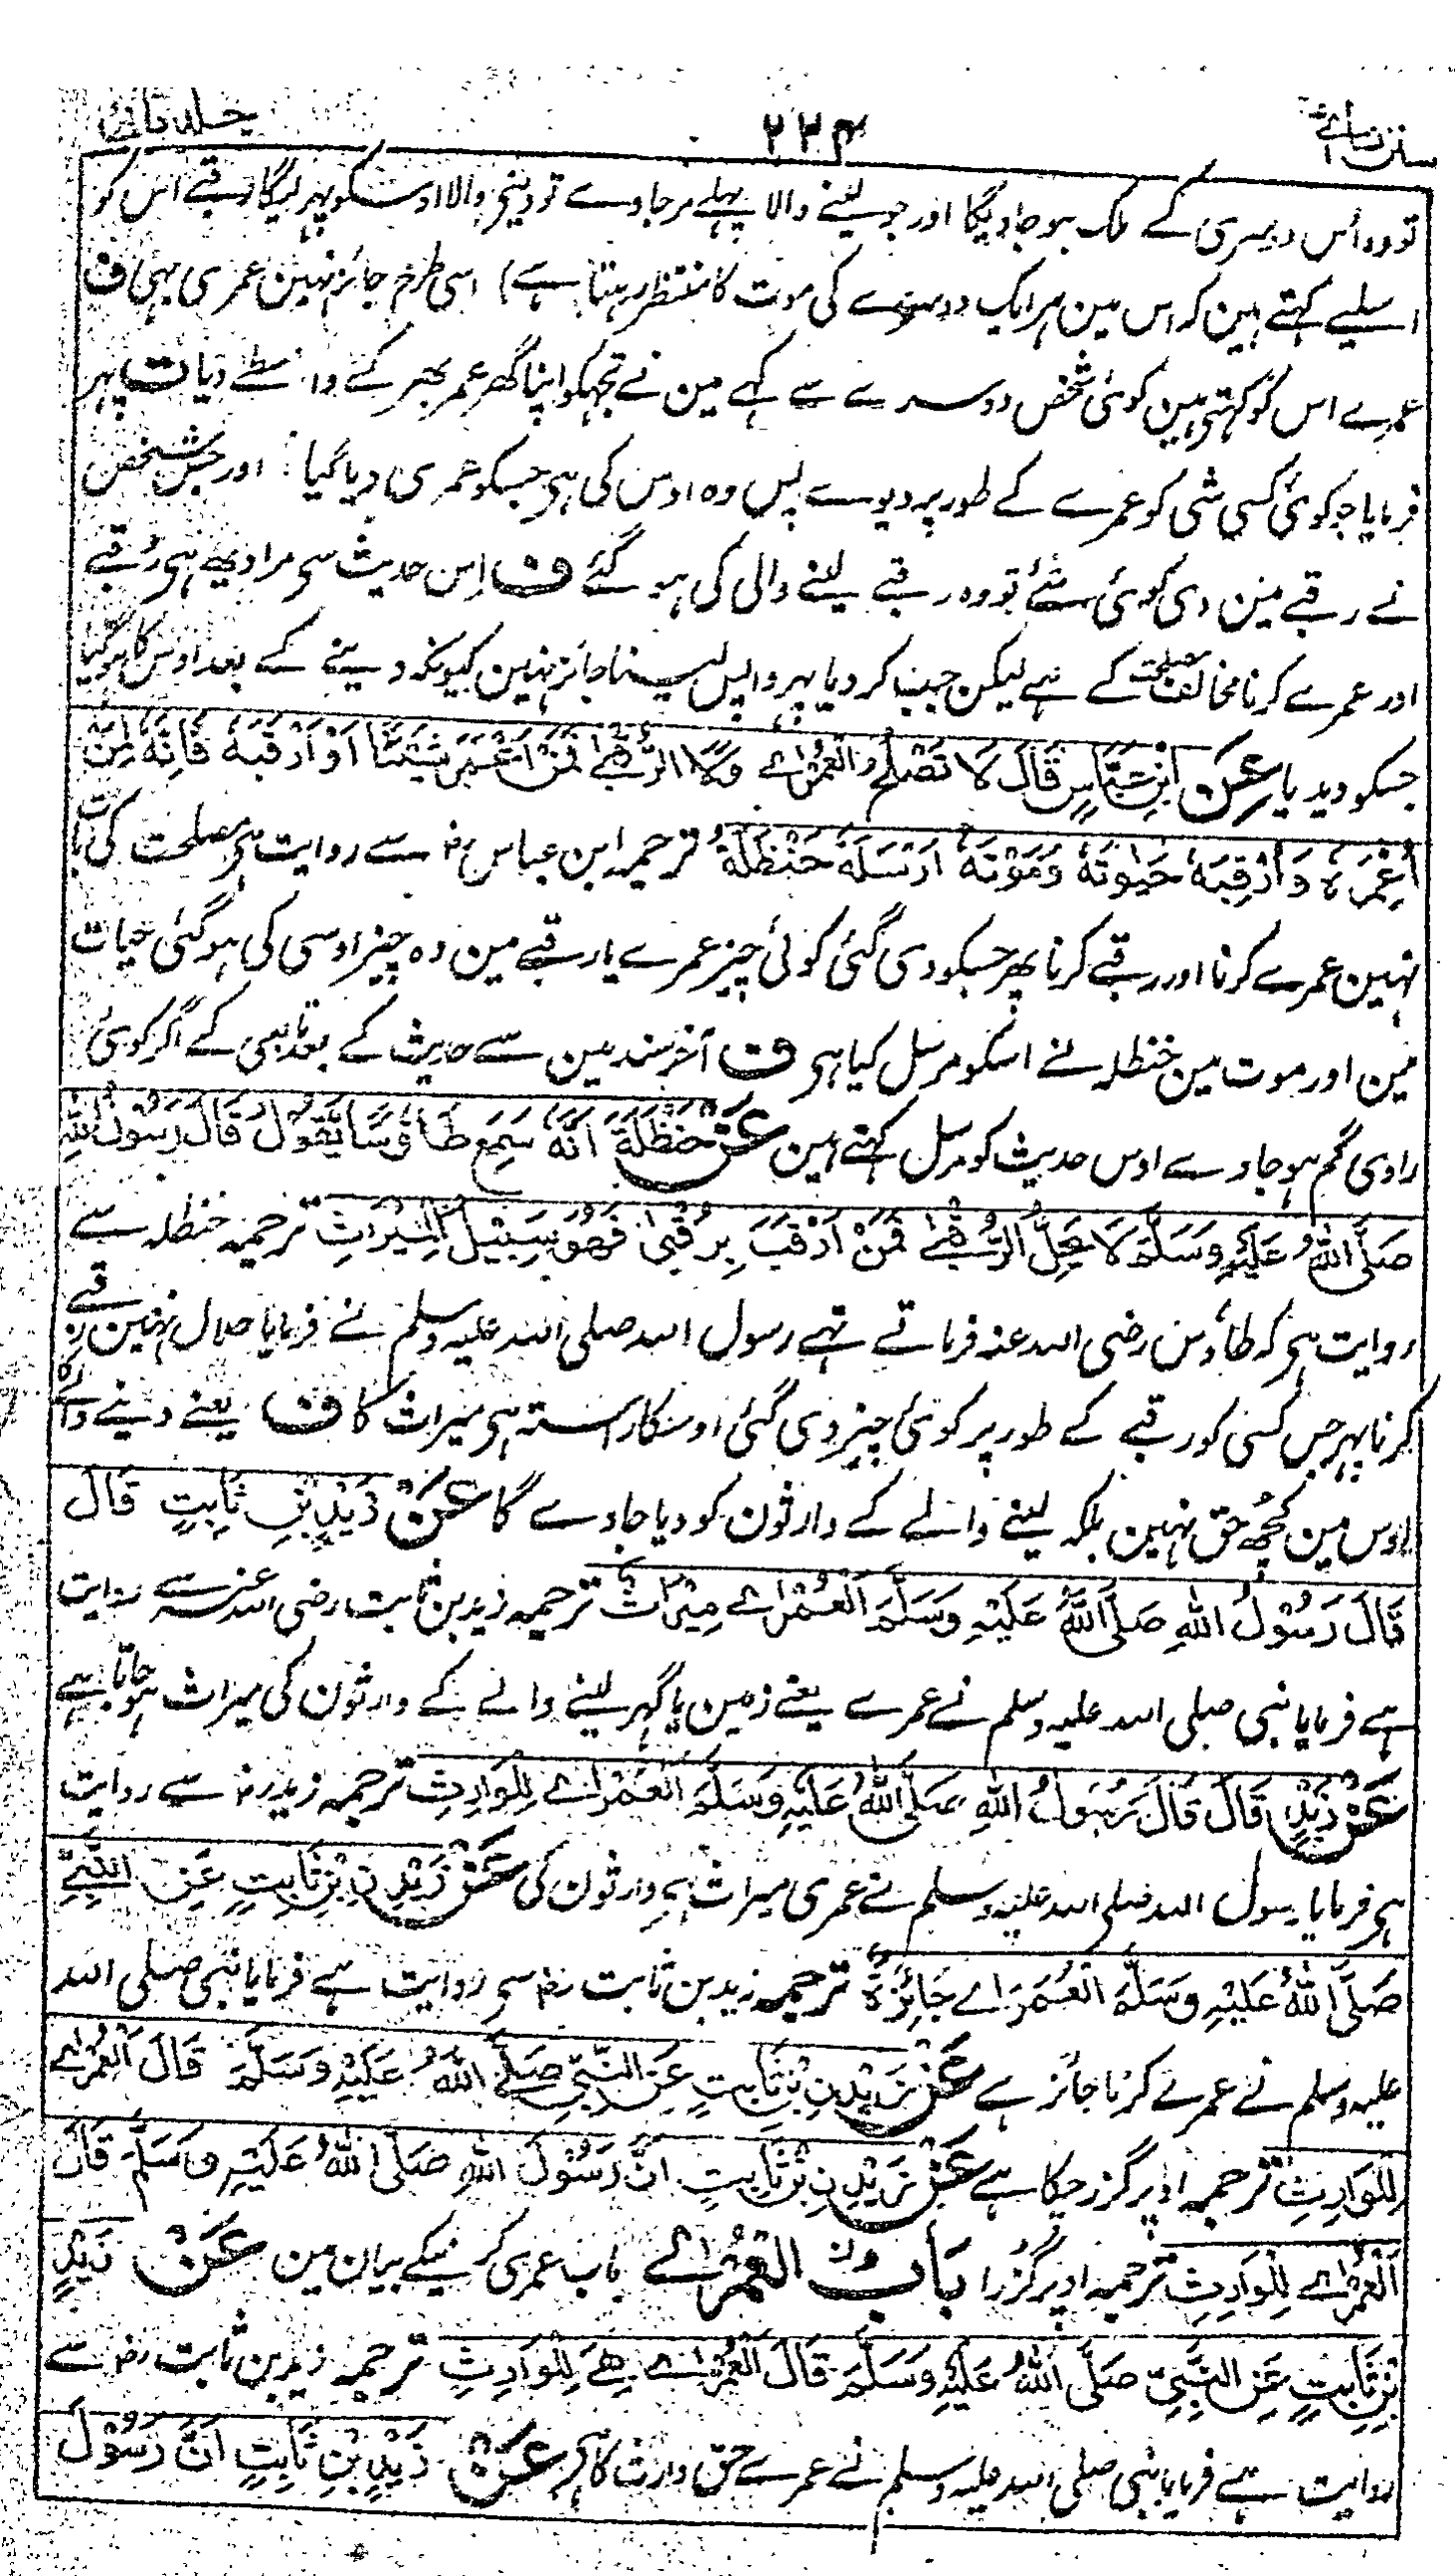 سنن نسائے ۲۲۴ جلد ثانی
تو وہ اُس دوسری کے ملک ہو جاویگا اور جو لینے والا پہلے مرجاوے تو دینی والا اوسکو پہر لیگا رقبے اس کو
اسلیے کہتے ہین کہ اس مین ہر ایک دوسرے کی موت کا منتظر رہتا ہے) اسی طرح جائز نہین عمری بہی ف
عمرے اس کو کہتی ہین کوئی شخص دوسرے سے کہے مین نے تجہکو اپنا گھر عمر بھر کے واسطے دیا ت پہر
فرمایا جو کوئی کسی شی کو عمرے کے طور پر دیوے پس وہ اوس کی ہی جسکو عمری دیا گیا : اور جس شخص
نے رقبے مین دی کوئی شئے تو وہ رقبے لینے والی کی ہو گئے ف اِس حدیث سی مراد یہے ہی رُقبے
اور عمرے کرنا مخالف مصلحت کے ہے لیکن جب کر دیا پہر واپس لینا جائز نہین کیونکہ دینے کے بعد اوس کا ہو گیا
جسکو دیدیا عَنِ ابْنِ عَبَّاسٍ قَالَ لَا تَصْلُحُ الْعُمْرٰے وَلَا الرُّقْبٰے فَمَنْ اَعْمَرَ شَيْئًا اَوْ اَرْقَبَهٗ فَاِنَّهٗ لِمَنْ
اُعْمِرَهٗ وَاُرْقِبَهٗ حَيٰوتَهٗ وَمَوْتَهٗ اَرْسَلَهٗ حَنْظَلَةُ ترجمہ ابن عباس رض سے روایت ہی مصلحت کی بات
نہین عمرے کرنا اور رقبے کرنا پھر جسکو دی گئی کوئی چیز عمرے یا رقبے مین وہ چیز اوسی کی ہو گئی حیات
مین اور موت مین حنظلہ نے اسکو مرسل کیا ہی ف آخر سند مین سے حدیث کے بعد تابعی کے اگر کوئی
راوی گم ہو جاوے اوس حدیث کو مرسل کہتے ہین عَنْ حَنْظَلَةَ اَنَّهٗ سَمِعَ طَاوُسًا يَقُوْلُ قَالَ رَسُوْلُ اللّٰهِ
صَلَّى اللّٰهُ عَلَيْهِ وَسَلَّمَ لَا تَحِلُّ الرُّقْبٰے فَمَنْ اُرْقِبَ بِرُقْبٰى فَهُوَ سَبِيْلُ الْمِيْرَاثِ ترجمہ حنظلہ سے
روایت ہی کہ طاؤس رضی اللہ عنہ فرماتے تہے رسول اللہ صلی اللہ علیہ وسلم نے فرمایا حلال نہین رقبے
کرنا پہر جس کسی کو رقبے کے طور پر کوئی چیز دی گئی اوسکا راستہ ہی میراث کا ف یعنے دینے والے کا
اوس مین کچھ حق نہین بلکہ لینے والے کے وارثون کو دیا جاوے گا عَنْ زَيْدِ بْنِ ثَابِتٍ قَالَ
قَالَ رَسُوْلُ اللّٰهِ صَلَّى اللّٰهُ عَلَيْهِ وَسَلَّمَ الْعُمْرٰے مِيْرَاثٌ ترجمہ زید بن ثابت رضی اللہ عنہ سے روایت
ہے فرمایا نبی صلی اللہ علیہ وسلم نے عمرے یعنے زمین یا گہر لینے والے کے وارثون کی میراث ہو جاتا ہے
عَنْ زَيْدٍ قَالَ قَالَ رَسُوْلُ اللّٰهِ صَلَّى اللّٰهُ عَلَيْهِ وَسَلَّمَ الْعُمْرٰے لِلْوَارِثِ ترجمہ زید رض سے روایت
ہی فرمایا رسول اللہ صلی اللہ علیہ وسلم نے عمری میراث ہی وارثون کی عَنْ زَيْدِ نِ بْنِ ثَابِتٍ عَنِ النَّبِيِّ
صَلَّى اللّٰهُ عَلَيْهِ وَسَلَّمَ الْعُمْرٰے جَائِزَةٌ ترجمہ زید بن ثابت رض سی روایت ہے فرمایا نبی صلی اللہ
علیہ وسلم نے عمرے کرنا جائز ہے عَنْ زَيْدِ نِ بْنِ ثَابِتٍ عَنِ النَّبِيِّ صَلَّى اللّٰهُ عَلَيْهِ وَسَلَّمَ قَالَ الْعُمْرٰے
لِلْوَارِثِ ترجمہ اوپر گزر چکا ہے عَنْ زَيْدِ نِ بْنِ ثَابِتٍ اَنَّ رَسُوْلَ اللّٰهِ صَلَّى اللّٰهُ عَلَيْهِ وَسَلَّمَ قَالَ
الْعُمْرٰے لِلْوَارِثِ ترجمہ اوپر گزرا بَابُ الْعُمْرٰے باب عمری کرنیکے بیان مین عَنْ زَيْدِ
بْنِ ثَابِتٍ عَنِ النَّبِيِّ صَلَّى اللّٰهُ عَلَيْهِ وَسَلَّمَ قَالَ الْعُمْرٰے هِىَ لِلْوَارِثِ ترجمہ زید بن ثابت رض سے
روایت ہے فرمایا نبی صلی اللہ علیہ وسلم نے عمرے حق وارث کا ہی عَنْ زَيْدِ بْنِ ثَابِتٍ اَنَّ رَسُوْلَ